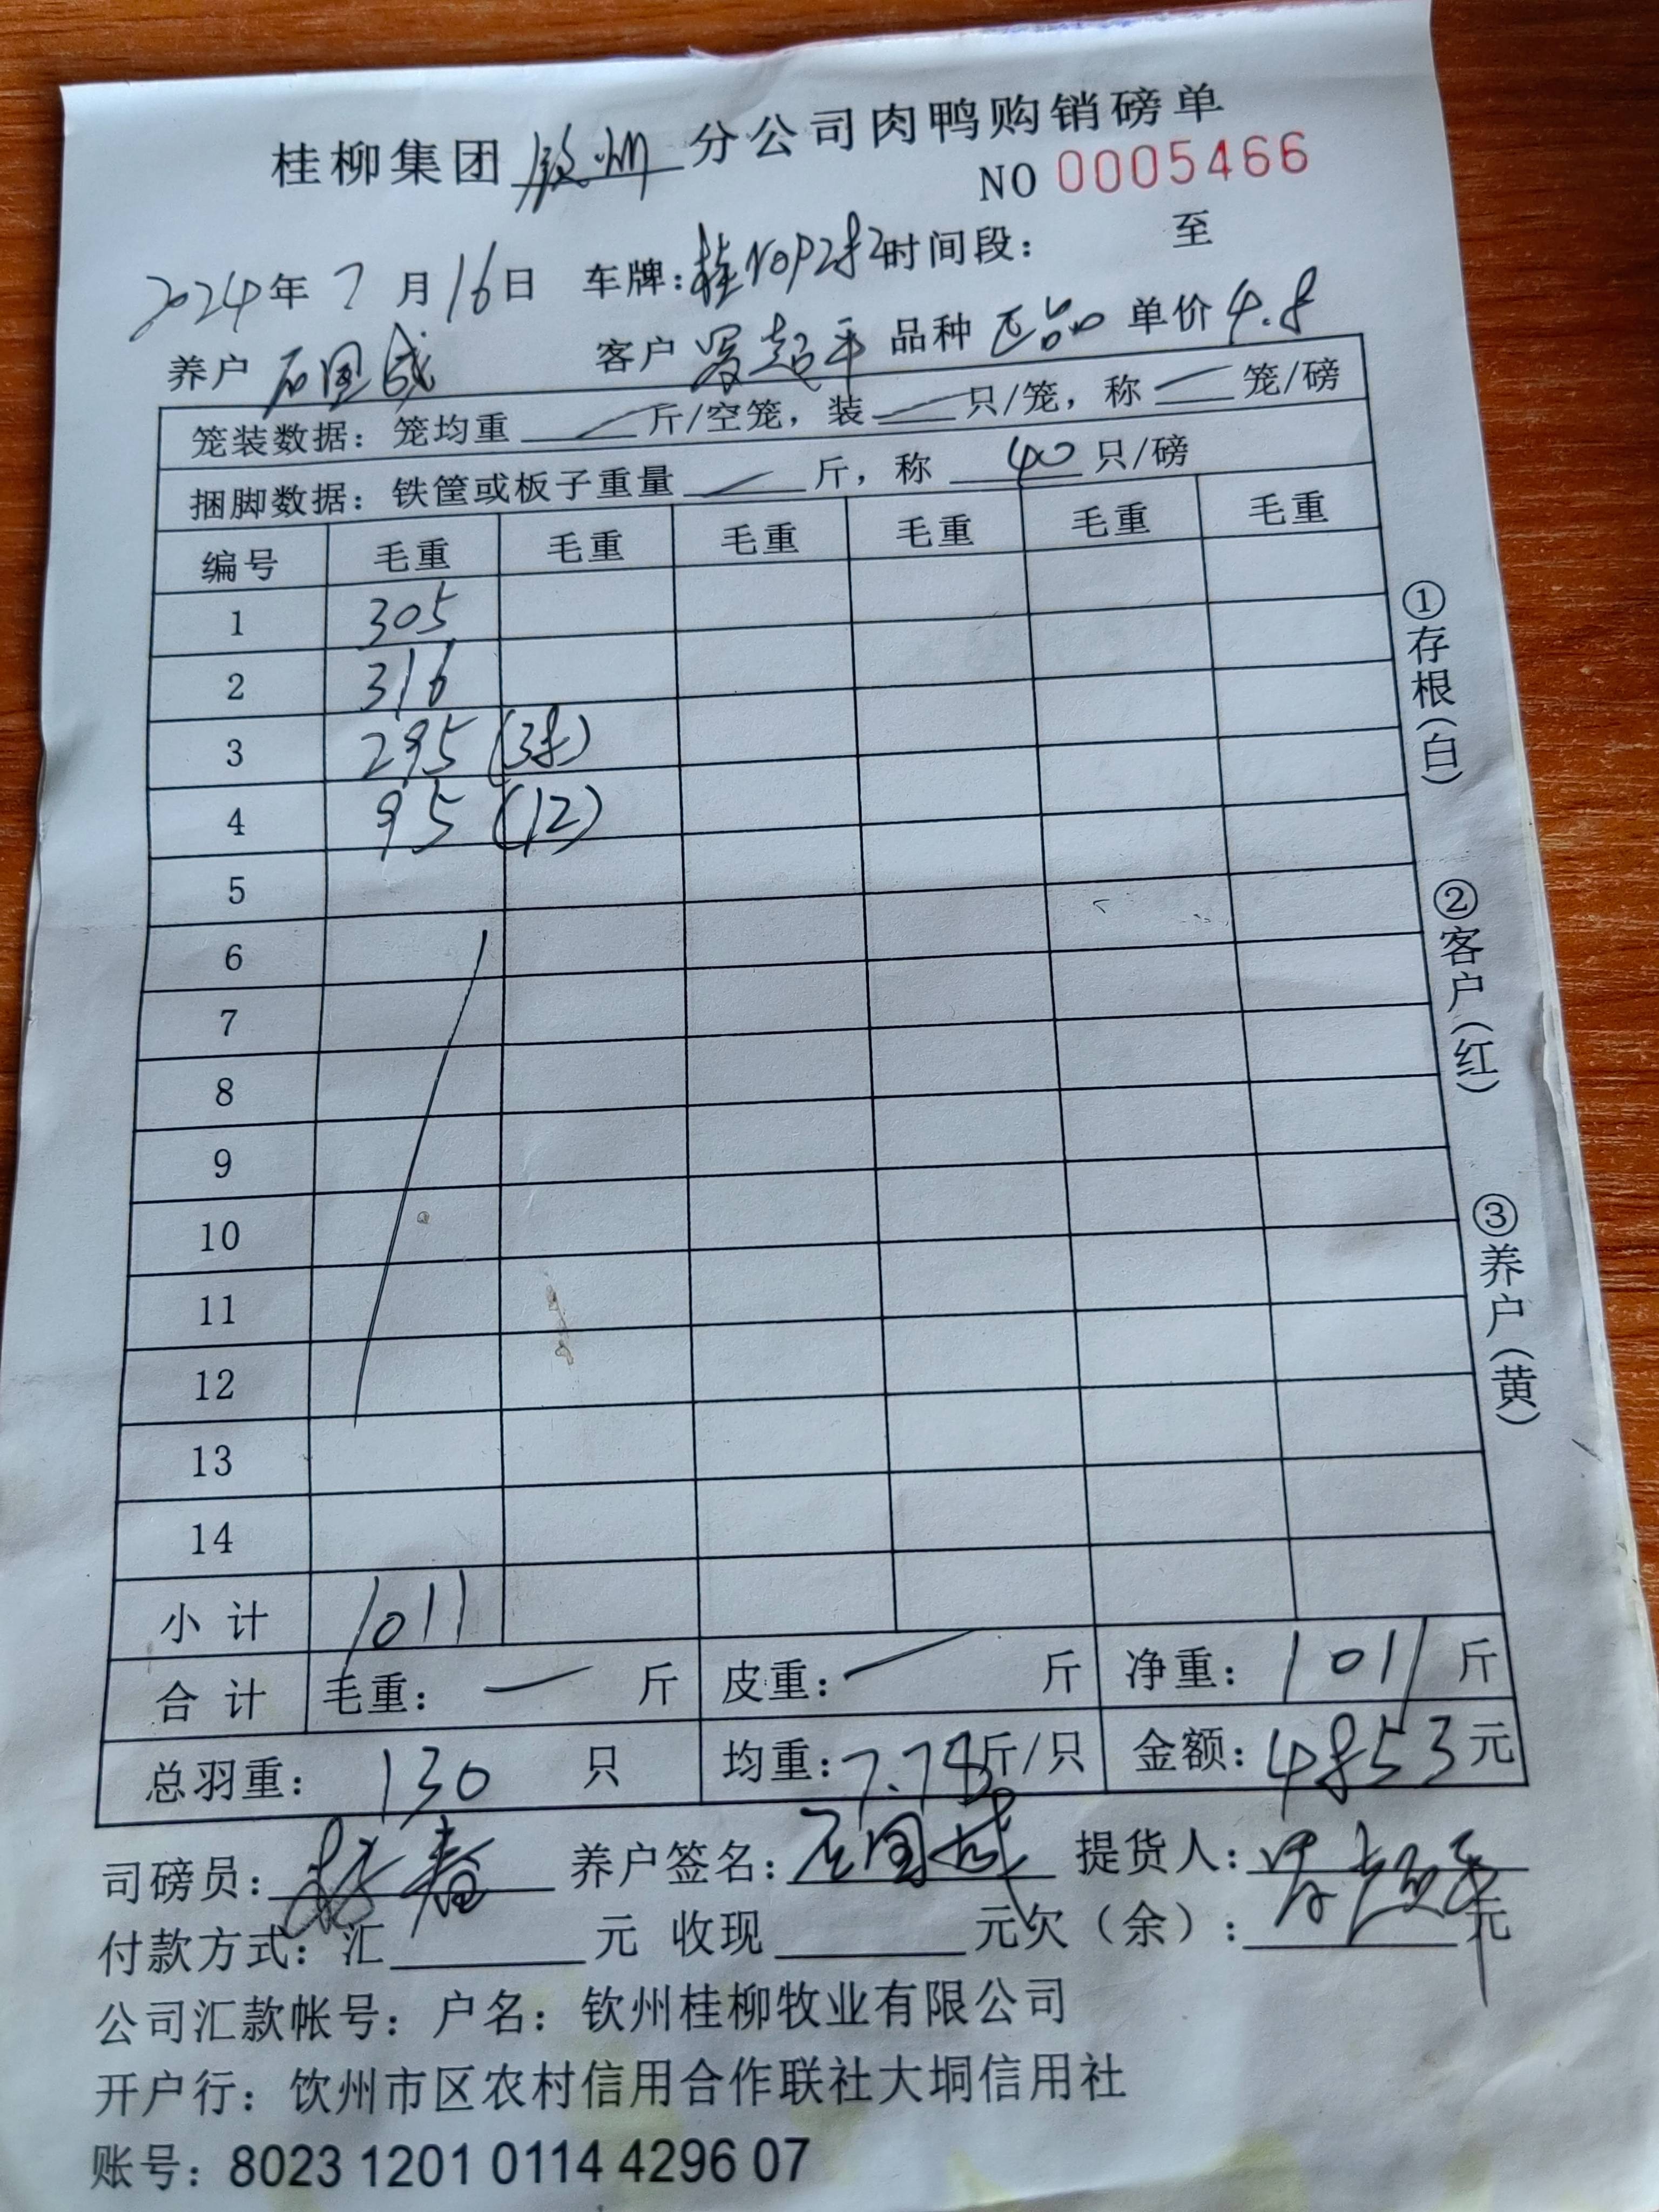 桂柳集团 钦州 分公司肉鸭购销磅单
NO 0005466
2024年 7 月 16日 车牌: 桂 时间段: 至
养户 石国成 客户 罗超平 品种 正品 单价 4.8
笼装数据: 笼均重 — 斤/空笼, 装 — 只/笼, 称 — 笼/磅
捆脚数据: 铁筐或板子重量 — 斤, 称 40 只/磅
编号 毛重 毛重 毛重 毛重 毛重 毛重
1 305
2 316
3 295 (38)
4 95 (12)
5
6
7
8
9
10
11
12
13
14
小 计 1011
合 计 毛重: — 斤 皮重: — 斤 净重: 1011 斤
总羽重: 130 只 均重: 7.78斤/只 金额: 4853 元
司磅员: 养户签名: 石国成 提货人: 罗超平
付款方式: 汇 元 收现 元欠(余): 元
公司汇款帐号: 户名: 钦州桂柳牧业有限公司
开户行: 饮州市区农村信用合作联社大垌信用社
账号: 8023 1201 0114 4296 07
①存根(白)
②客户(红)
③养户(黄)